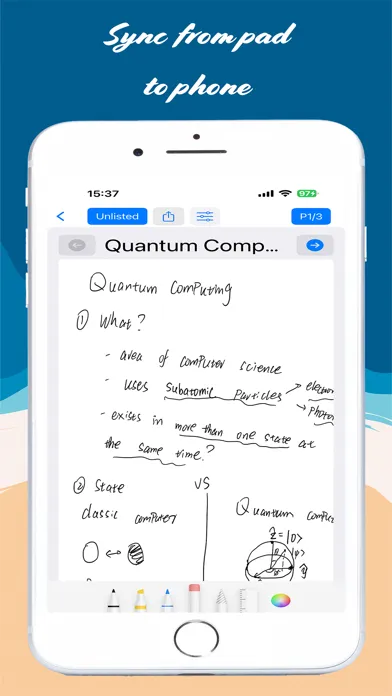 Sync from pad
to phone
15:37
97
Unlisted
P1/3
Quantum Comp...
Quantum Computing
① What?
- area of computer science
- uses subatomic particles → electron
→ photon
- exists in more than one state at
the same time?
② State VS
classic computer Quantum compute
Z=|0⟩
θ |ψ⟩
ŷ